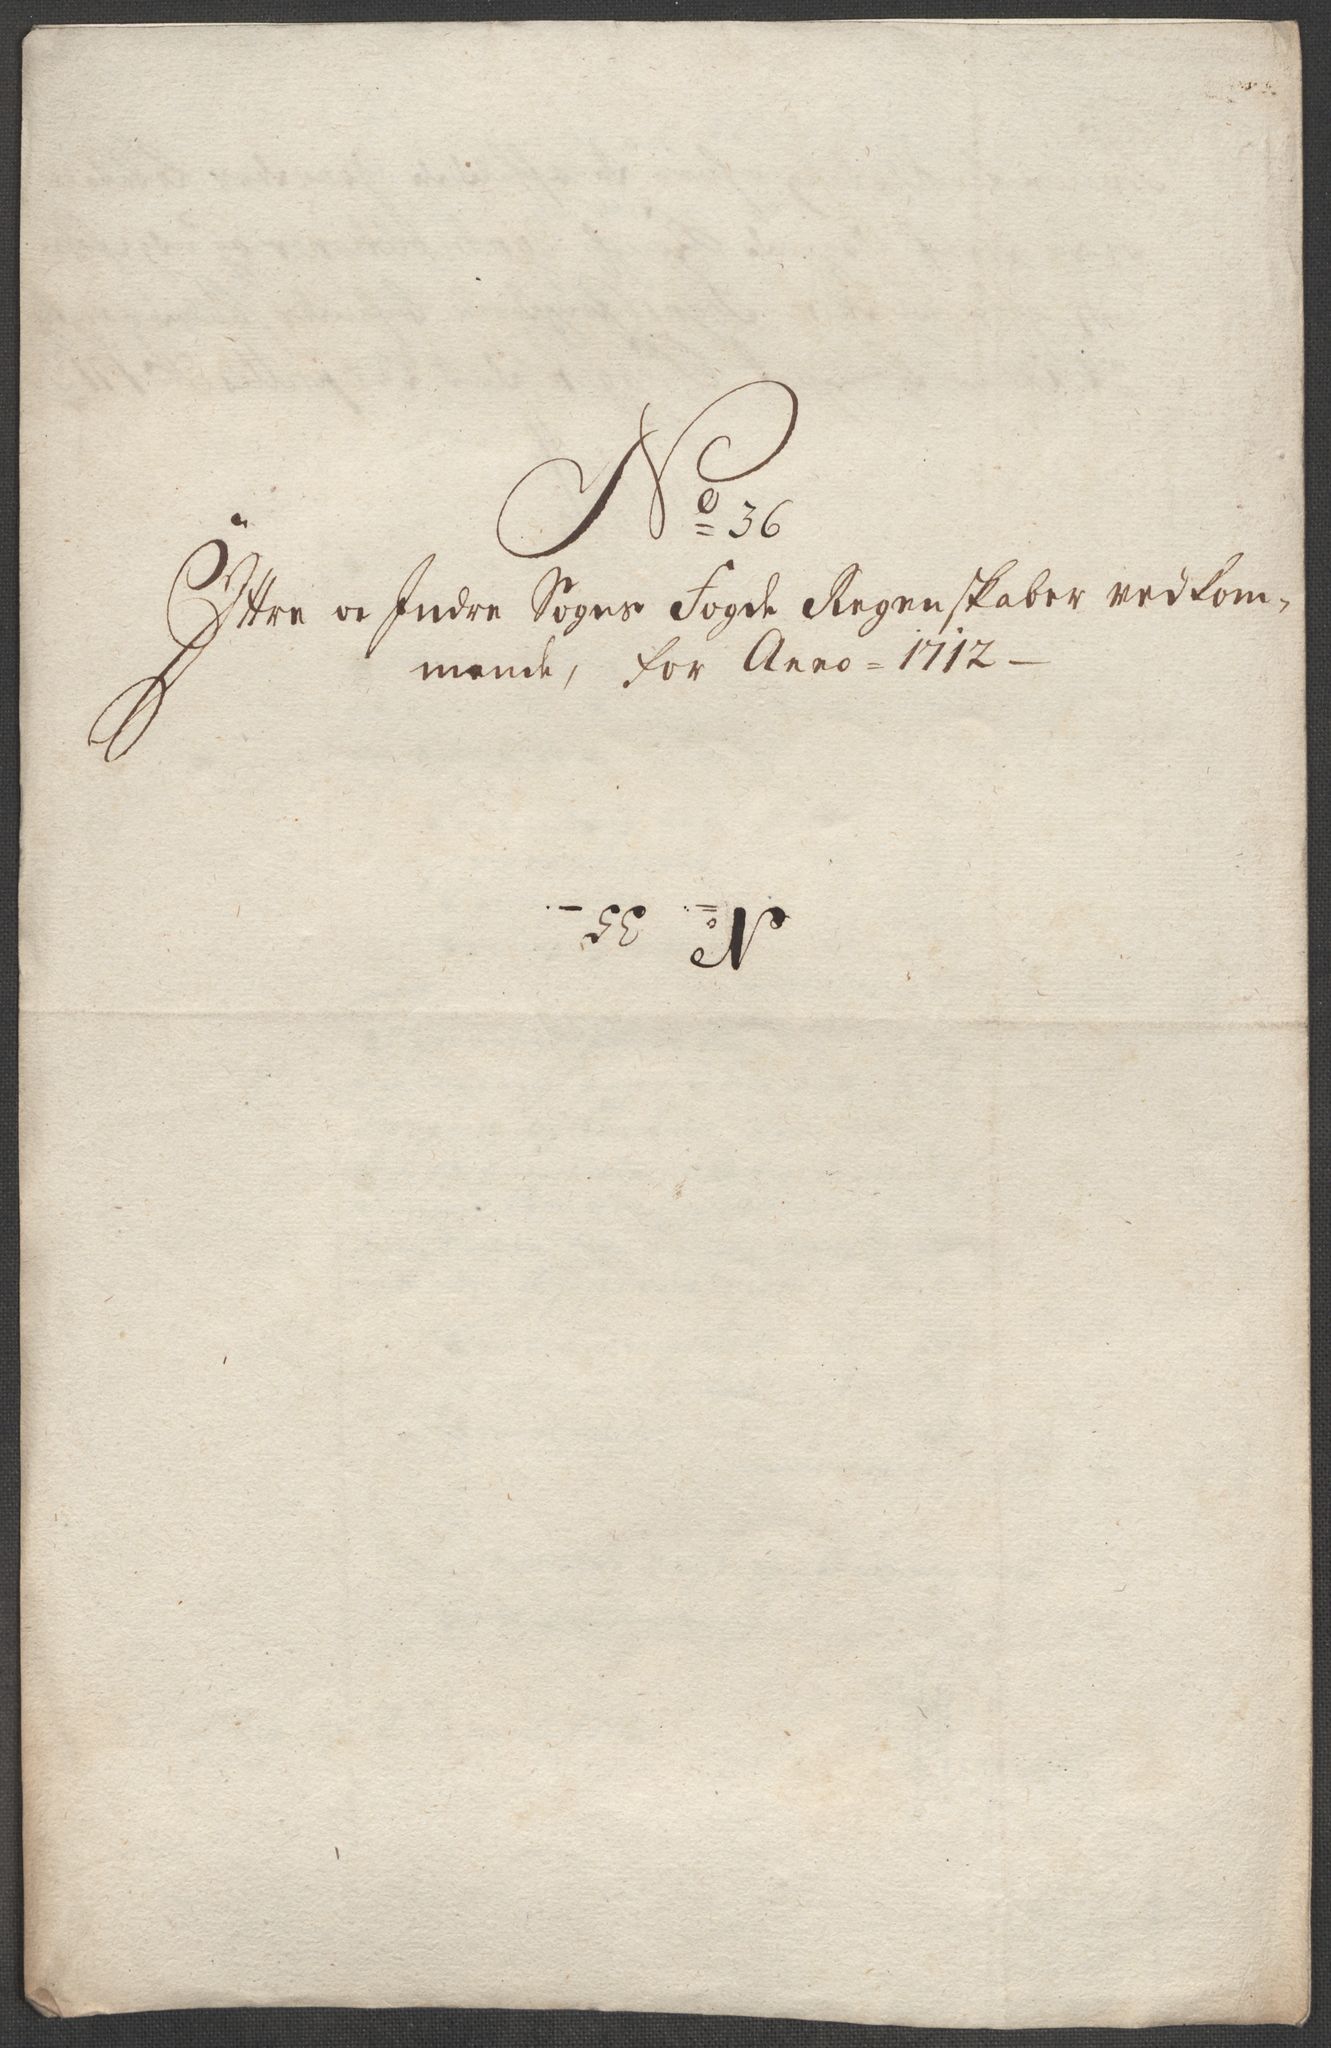 No 36
Yttre oc Indre Sogns Fogde Regenskaber vedkom-
mende, for Anno = 1712 -
No. 35 -